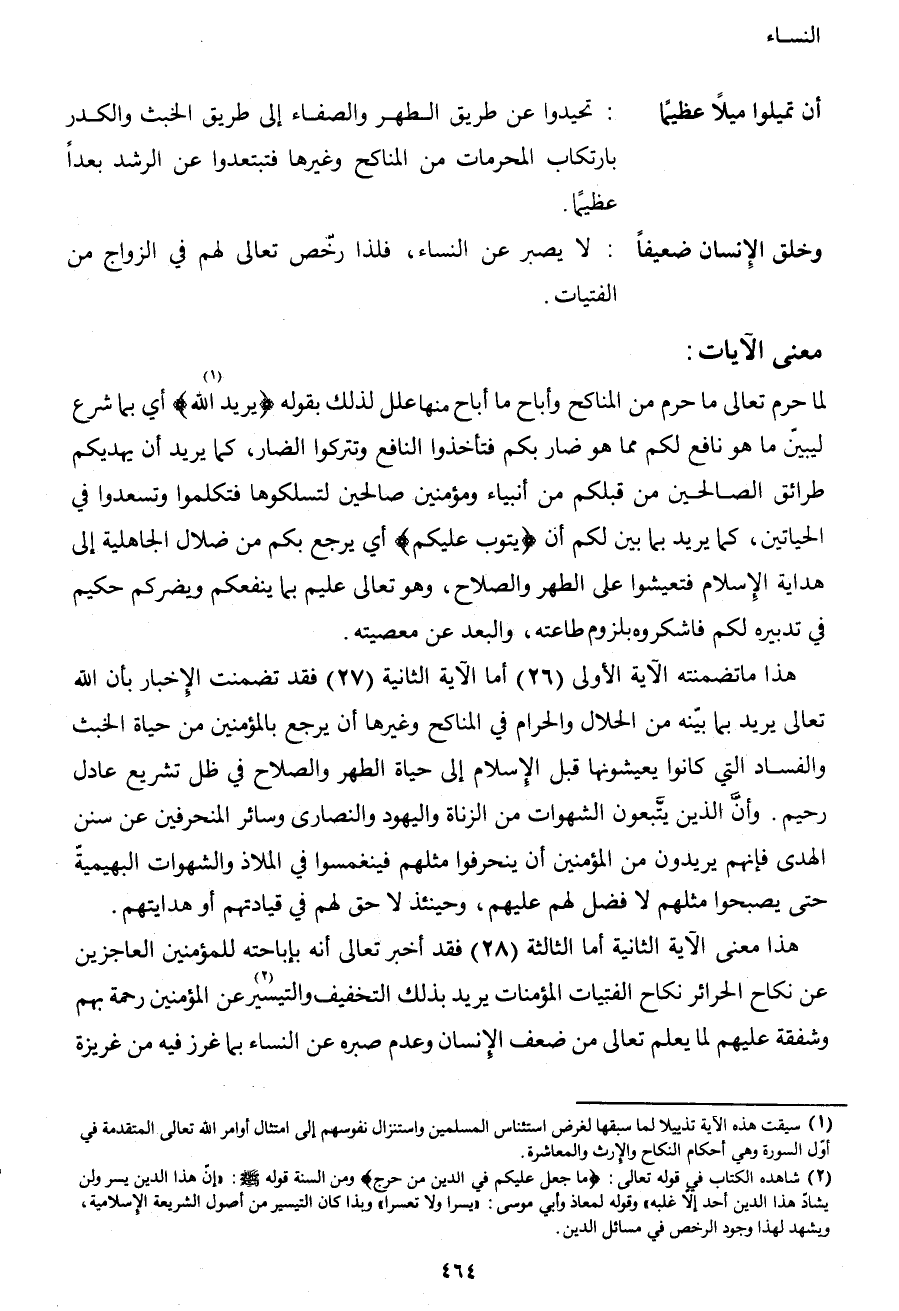 النســاء
أن تميلوا ميلًا عظيمًا : تحيدوا عن طريق الـطهـر والصفـاء إلى طريق الخبث والكـدر
بارتكاب المحرمات من المناكح وغيرها فتبتعدوا عن الرشد بعداً
عظيمًا.
وخلق الإنسان ضعيفاً : لا يصبر عن النساء، فلذا رخّص تعالى لهم في الزواج من
الفتيات .
معنى الآيات :
لما حرم تعالى ما حرم من المناكح وأباح ما أباح منها علل لذلك بقوله ﴿يريد الله﴾(١) أي بما شرع
ليبينّ ما هو نافع لكم مما هو ضار بكم فتأخذوا النافع وتتركوا الضار، كما يريد أن يهديكم
طرائق الصـالحـين من قبلكم من أنبياء ومؤمنين صالحين لتسلكوها فتكلموا وتسعدوا في
الحياتين، كما يريد بما بين لكم أن ﴿يتوب عليكم﴾ أي يرجع بكم من ضلال الجاهلية إلى
هداية الإسلام فتعيشوا على الطهر والصلاح، وهو تعالى عليم بما ينفعكم ويضركم حكيم
في تدبيره لكم فاشكروه بلزوم طاعته، والبعد عن معصيته .
هذا ماتضمنته الآية الأولى (٢٦) أما الآية الثانية (٢٧) فقد تضمنت الإخبار بأن الله
تعالى يريد بما بيّنه من الحلال والحرام في المناكح وغيرها أن يرجع بالمؤمنين من حياة الخبث
والفسـاد التي كانوا يعيشونها قبل الإسلام إلى حياة الطهر والصلاح في ظل تشريع عادل
رحيم . وأنَّ الذين يتَّبعون الشهوات من الزناة واليهود والنصارى وسائر المنحرفين عن سنن
الهدى فإنهم يريدون من المؤمنين أن ينحرفوا مثلهم فينغمسوا في الملاذ والشهوات البهيميةّ
حتى يصبحوا مثلهم لا فضل لهم عليهم، وحينئذ لا حق لهم في قيادتهم أو هدايتهم .
هذا معنى الآية الثانية أما الثالثة (٢٨) فقد أخبر تعالى أنه بإباحته للمؤمنين العاجزين
عن نكاح الحرائر نكاح الفتيات المؤمنات يريد بذلك التخفيف والتيسير(٢) عن المؤمنين رحمة بهم
وشفقة عليهم لما يعلم تعالى من ضعف الإنسان وعدم صبره عن النساء بما غرز فيه من غريزة
(١) سيقت هذه الآية تذييلا لما سبقها لغرض استئناس المسلمين واستنزال نفوسهم إلى امتثال أوامر الله تعالى المتقدمة في
أوّل السورة وهي أحكام النكاح والإرث والمعاشرة.
(٢) شاهده الكتاب في قوله تعالى : ﴿ما جعل عليكم في الدين من حرج﴾ ومن السنة قوله ﷺ : «إنّ هذا الدين يسر ولن
يشادّ هذا الدين أحد إلّا غلبه» وقوله لمعاذ وأبي موسى : «يسرا ولا تعسرا» وبذا كان التيسير من أصول الشريعة الإسلامية،
ويشهد لهذا وجود الرخص في مسائل الدين .
٤٦٤